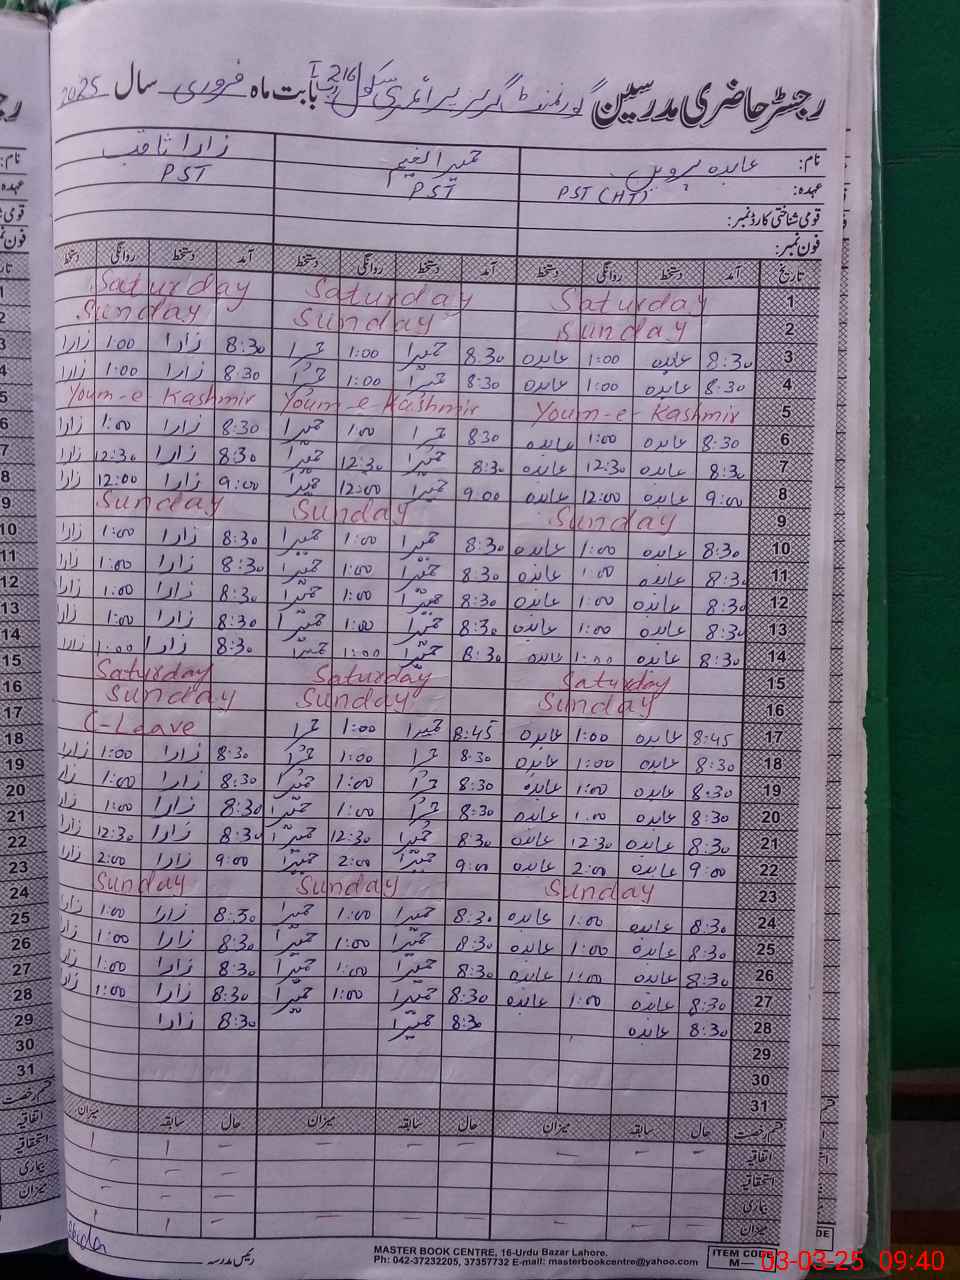 رجسٹر حاضری مدرسین گورنمنٹ گرلز پرائمری سکول 216 ر ب I بابت ماہ فروری سال 2025
نام: عابدہ پروین حمیرا نعیم زارا ثاقب
عہدہ: PST (HT) PST PST
قومی شناختی کارڈ نمبر:
فون نمبر:
تاریخ آمد دستخط روانگی دستخط آمد دستخط روانگی دستخط آمد دستخط روانگی دستخط
1 Saturday Saturday Saturday
2 Sunday Sunday Sunday
3 8:30 عابدہ 1:00 عابدہ 8:30 حمیرا 1:00 حمیرا 8:30 زارا 1:00 زارا
4 8:30 عابدہ 1:00 عابدہ 8:30 حمیرا 1:00 حمیرا 8:30 زارا 1:00 زارا
5 Youm-e-Kashmir Youm-e-Kashmir Youm-e-Kashmir
6 8:30 عابدہ 1:00 عابدہ 8:30 حمیرا 1:00 حمیرا 8:30 زارا 1:00 زارا
7 8:30 عابدہ 12:30 عابدہ 8:30 حمیرا 12:30 حمیرا 8:30 زارا 12:30 زارا
8 9:00 عابدہ 12:00 عابدہ 9:00 حمیرا 12:00 حمیرا 9:00 زارا 12:00 زارا
9 Sunday Sunday Sunday
10 8:30 عابدہ 1:00 عابدہ 8:30 حمیرا 1:00 حمیرا 8:30 زارا 1:00 زارا
11 8:30 عابدہ 1:00 عابدہ 8:30 حمیرا 1:00 حمیرا 8:30 زارا 1:00 زارا
12 8:30 عابدہ 1:00 عابدہ 8:30 حمیرا 1:00 حمیرا 8:30 زارا 1:00 زارا
13 8:30 عابدہ 1:00 عابدہ 8:30 حمیرا 1:00 حمیرا 8:30 زارا 1:00 زارا
14 8:30 عابدہ 1:00 عابدہ 8:30 حمیرا 1:00 حمیرا 8:30 زارا 1:00 زارا
15 Saturday Saturday Saturday
16 Sunday Sunday Sunday
17 8:45 عابدہ 1:00 عابدہ 8:45 حمیرا 1:00 حمیرا C-Leave
18 8:30 عابدہ 1:00 عابدہ 8:30 حمیرا 1:00 حمیرا 8:30 زارا 1:00 زارا
19 8:30 عابدہ 1:00 عابدہ 8:30 حمیرا 1:00 حمیرا 8:30 زارا 1:00 زارا
20 8:30 عابدہ 1:00 عابدہ 8:30 حمیرا 1:00 حمیرا 8:30 زارا 1:00 زارا
21 8:30 عابدہ 12:30 عابدہ 8:30 حمیرا 12:30 حمیرا 8:30 زارا 12:30 زارا
22 9:00 عابدہ 2:00 عابدہ 9:00 حمیرا 2:00 حمیرا 9:00 زارا 2:00 زارا
23 Sunday Sunday Sunday
24 8:30 عابدہ 1:00 عابدہ 8:30 حمیرا 1:00 حمیرا 8:30 زارا 1:00 زارا
25 8:30 عابدہ 1:00 عابدہ 8:30 حمیرا 1:00 حمیرا 8:30 زارا 1:00 زارا
26 8:30 عابدہ 1:00 عابدہ 8:30 حمیرا 1:00 حمیرا 8:30 زارا 1:00 زارا
27 8:30 عابدہ 1:00 عابدہ 8:30 حمیرا 1:00 حمیرا 8:30 زارا 1:00 زارا
28 8:30 عابدہ 8:30 حمیرا 8:30 زارا
29
30
31
قسم رخصت حال سابقہ میزان حال سابقہ میزان حال سابقہ میزان
اتفاقیہ - - - - - - - 1 1
استحقاقیہ - -
بیماری - -
میزان - - - - - - - 1 1
Abida
رئیس مدرسہ
MASTER BOOK CENTRE, 16-Urdu Bazar Lahore.
Ph: 042-37232205, 37357732 E-mail: masterbookcentre@yahoo.com
ITEM CODE
M—
03-03-25 09:40